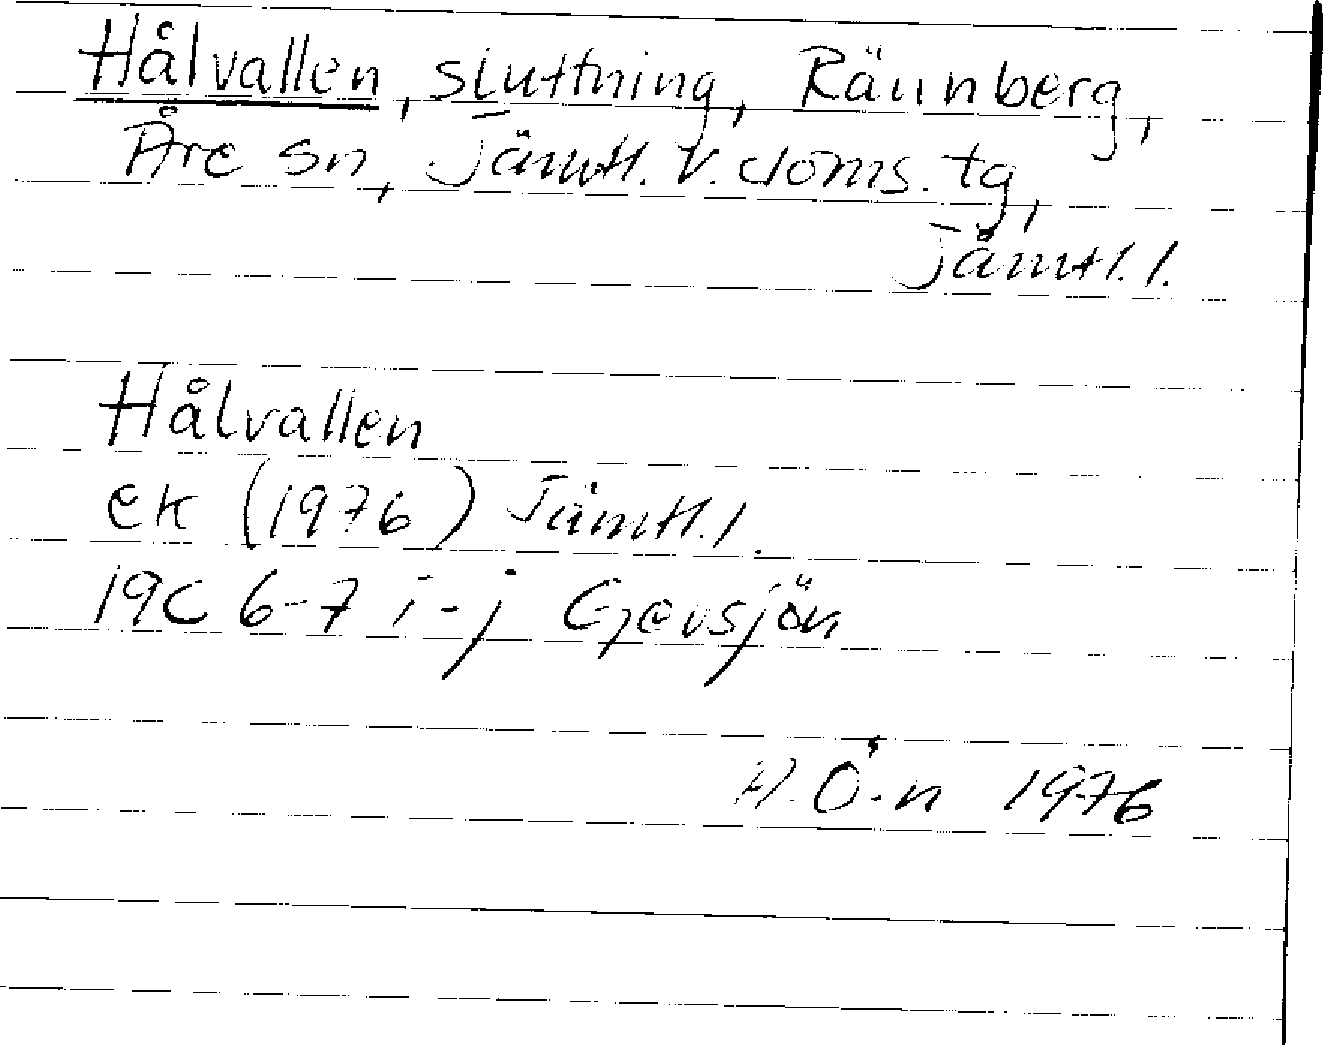 Hålvallen, sluttning, Räunberg,
Åre sn, Jämtl. v. doms. tg,
Jämtl. l.
Hålvallen
ek (1976) Jämtl. l.
19C 6-7 i-j Gjevsjön
H.Ö-n 1976